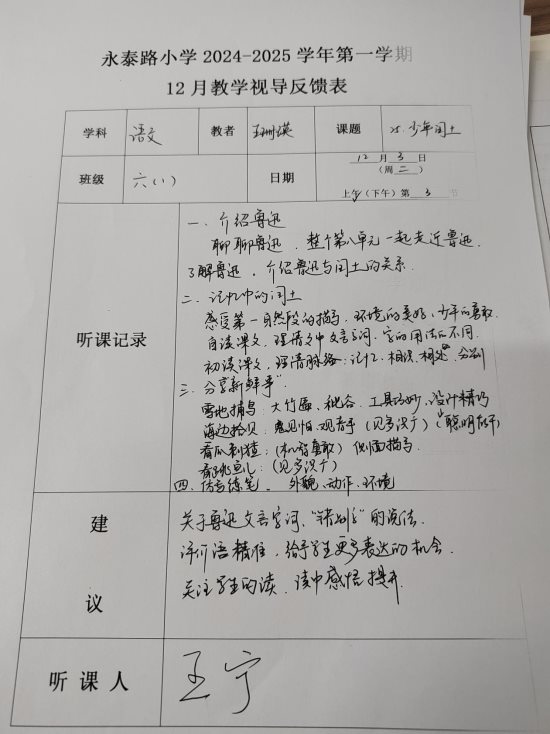 永泰路小学 2024-2025 学年第一学期
12 月教学视导反馈表
学科 语文 教者 课题 25.少年闰土
班级 六(1) 日期 12 月 3 日
(周 二 )
上午(下午)第 3 节
听课记录
一、介绍鲁迅
聊聊鲁迅、整个第八单元一起走近鲁迅.
了解鲁迅、介绍鲁迅与闰土的关系.
二、记忆中的闰土
感受第一自然段的描写,环境的美好,少年的勇敢.
自读课文,理清文中文言字词、字的用法的不同.
初读课文,理清脉络:记忆、相识、相处、分别
三、分享“新鲜事”
雪地捕鸟:大竹匾、秕谷、工具巧妙、设计精巧
海边拾贝:鬼见怕、观音手(见多识广)
看瓜刺猹:(机智勇敢) 侧面描写
看跳鱼儿:(见多识广)
四、仿写练笔. 外貌、动作、环境
建
议
关于鲁迅文言字词、“错别字”的说法.
评价语精准,给予学生更多表达的机会.
关注学生的读、读中感悟提升.
听 课 人 王宁